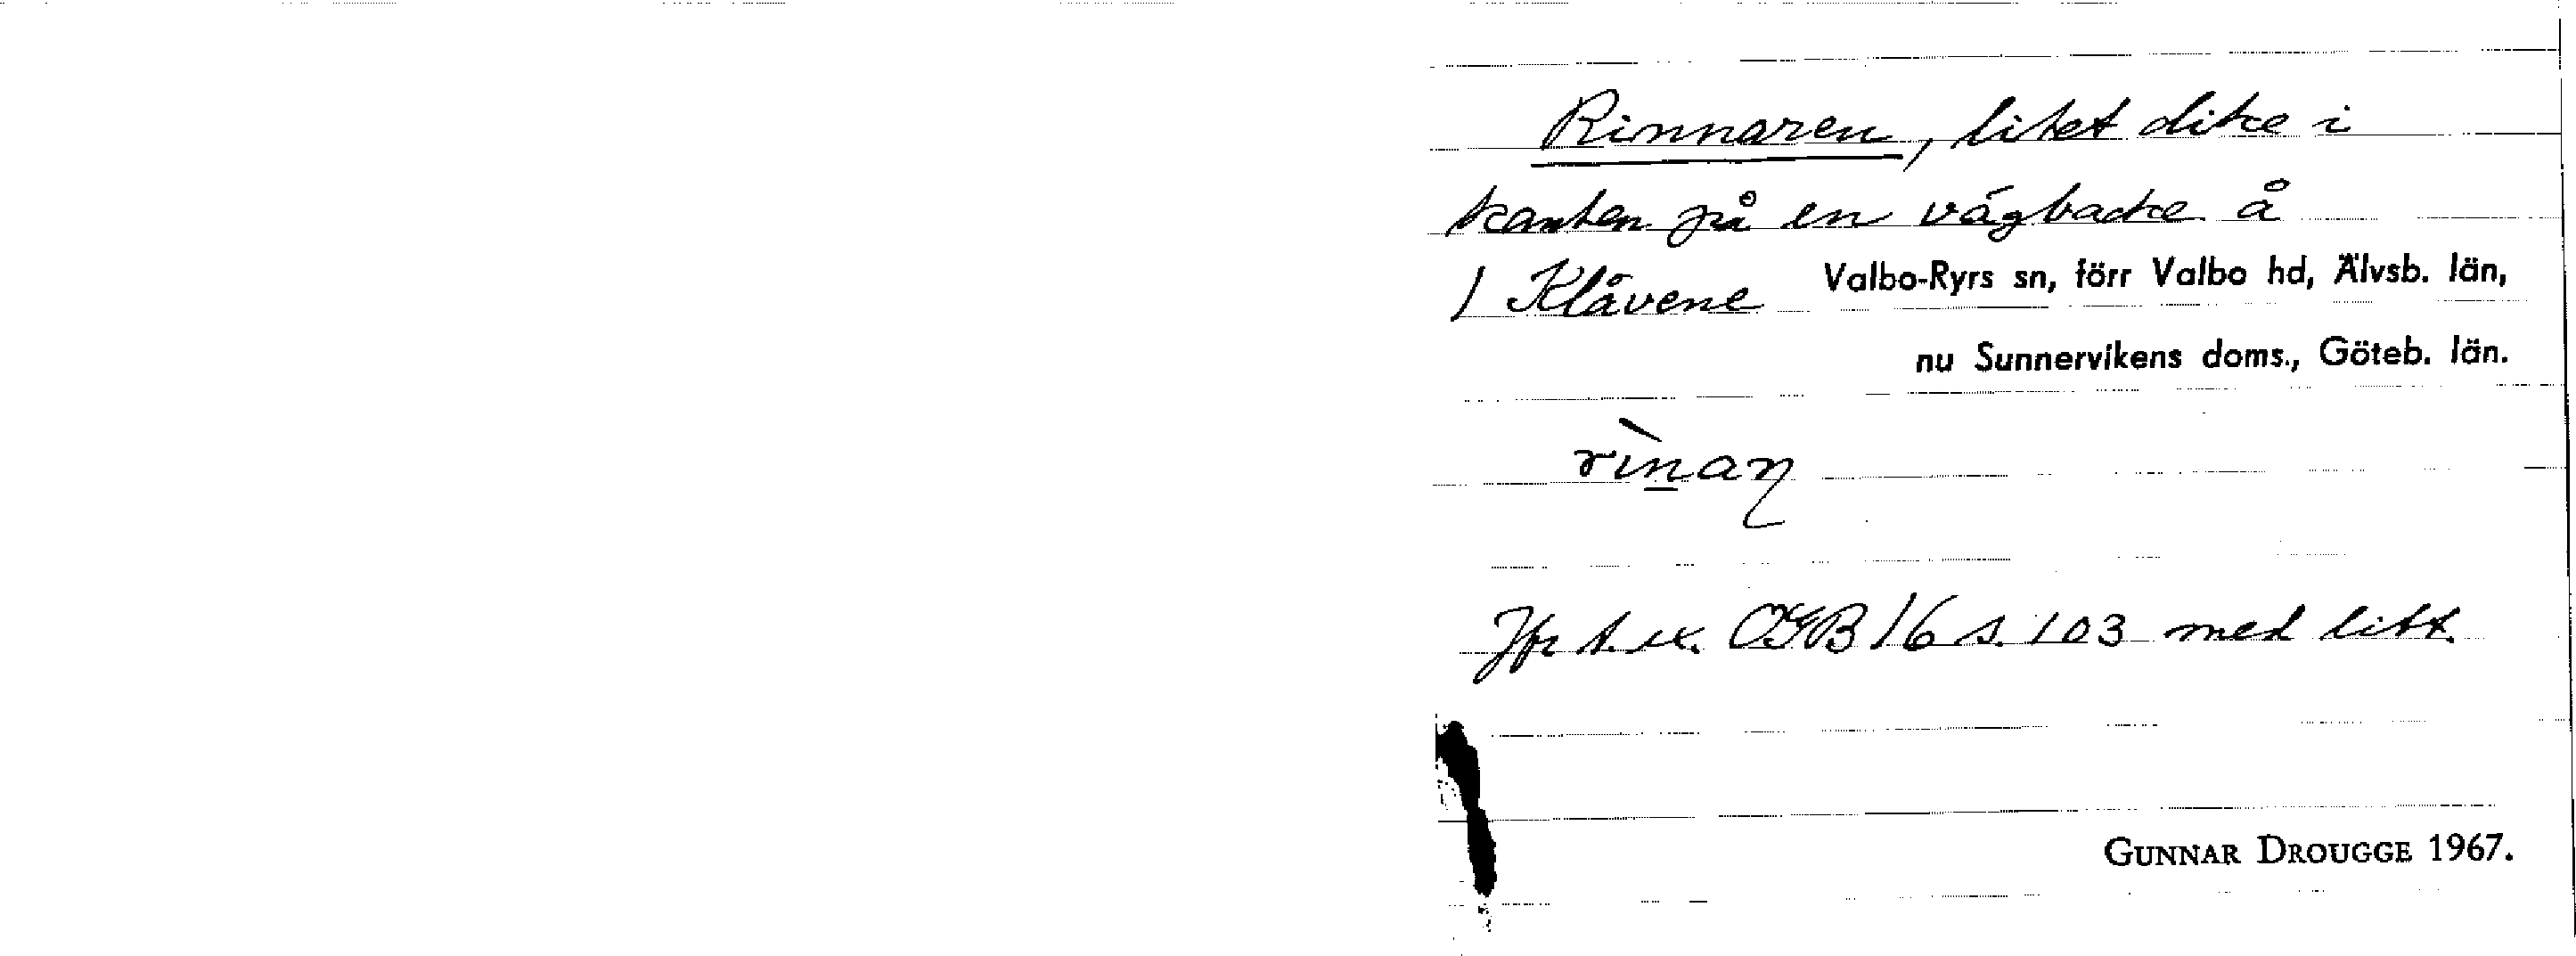 Rinnaren, litet dike i
kanten på en vägbacke å
1 Klåvene Valbo-Ryrs sn, förr Valbo hd, Älvsb. län,
nu Sunnervikens doms., Göteb. län.
Jfr t.ex. OGB 16 s. 103 med litt.
GUNNAR DROUGGE 1967.